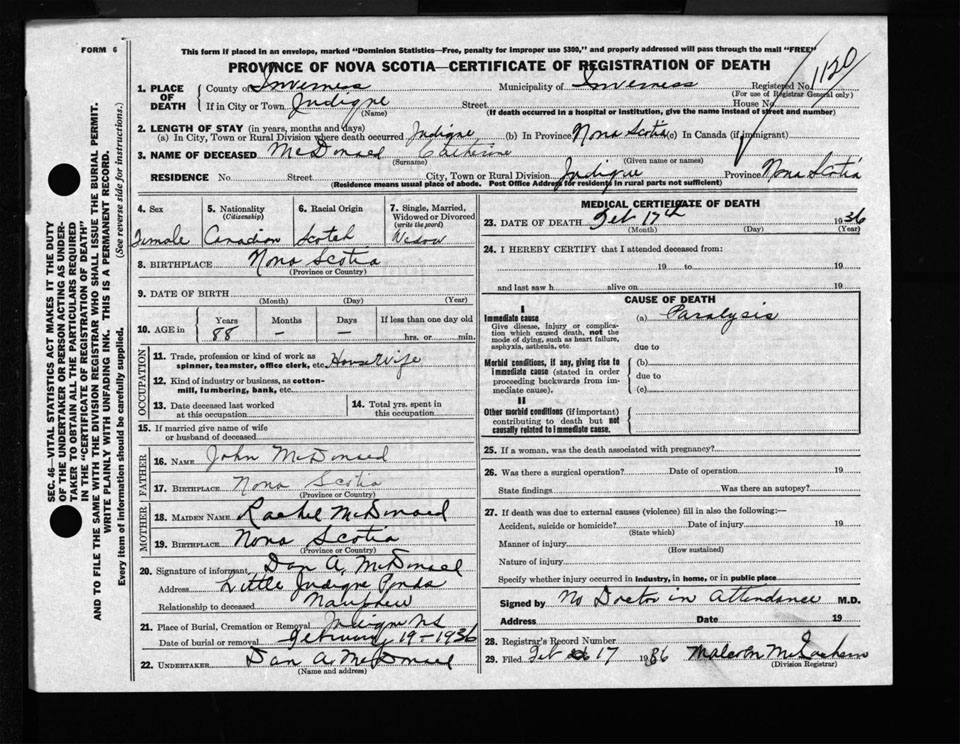 FORM 6
This form if placed in an envelope, marked "Dominion Statistics—Free, penalty for improper use $300," and properly addressed will pass through the mail "FREE"
PROVINCE OF NOVA SCOTIA—CERTIFICATE OF REGISTRATION OF DEATH
1. PLACE OF DEATH County of Inverness Municipality of Inverness Registered No. 1120
(For use of Registrar General only)
If in City or Town Judique Street House No.
(Name) (If death occurred in a hospital or institution, give the name instead of street and number)
2. LENGTH OF STAY (in years, months and days)
(a) In City, Town or Rural Division where death occurred Judique (b) In Province Nova Scotia (c) In Canada (if immigrant)
3. NAME OF DECEASED McDonald Catherine
(Surname) (Given name or names)
RESIDENCE No. Street City, Town or Rural Division Judique Province Nova Scotia
(Residence means usual place of abode. Post Office Address for residents in rural parts not sufficient)
4. Sex Female
5. Nationality (Citizenship) Canadian
6. Racial Origin Scotch
7. Single, Married, Widowed or Divorced (write the word) Widow
8. BIRTHPLACE Nova Scotia
(Province or Country)
9. DATE OF BIRTH
(Month) (Day) (Year)
10. AGE in Years 88 Months — Days — If less than one day old hrs. or min.
OCCUPATION
11. Trade, profession or kind of work as spinner, teamster, office clerk, etc. Housewife
12. Kind of industry or business, as cotton-mill, lumbering, bank, etc.
13. Date deceased last worked at this occupation
14. Total yrs. spent in this occupation
15. If married give name of wife or husband of deceased
FATHER
16. NAME John McDonald
17. BIRTHPLACE Nova Scotia
(Province or Country)
MOTHER
18. MAIDEN NAME Rachel McDonald
19. BIRTHPLACE Nova Scotia
(Province or Country)
20. Signature of informant Dan A. McDonald
Address Little Judique Ponds
Relationship to deceased Naughhew
21. Place of Burial, Cremation or Removal NS
Date of burial or removal February 19-1936
22. UNDERTAKER Dan A. McDonald
(Name and address)
MEDICAL CERTIFICATE OF DEATH
23. DATE OF DEATH Feb 17th 1936
(Month) (Day) (Year)
24. I HEREBY CERTIFY that I attended deceased from:
19 to 19
and last saw h alive on 19
CAUSE OF DEATH
I
Immediate cause (a) Paralysis
Give disease, injury or complication which caused death, not the mode of dying, such as heart failure, asphyxia, asthenia, etc.
due to
Morbid conditions, if any, giving rise to immediate cause (stated in order proceeding backwards from immediate cause).
(b)
due to
(c)
II
Other morbid conditions (if important) contributing to death but not causally related to immediate cause.
25. If a woman, was the death associated with pregnancy?
26. Was there a surgical operation? Date of operation 19
State findings Was there an autopsy?
27. If death was due to external causes (violence) fill in also the following:—
Accident, suicide or homicide? Date of injury 19
(State which)
Manner of injury
(How sustained)
Nature of injury
Specify whether injury occurred in industry, in home, or in public place
Signed by No Doctor in Attendance M.D.
Address Date 19
28. Registrar's Record Number
29. Filed Feb 17 1936 Malcolm McEachern
(Division Registrar)
SEC. 46—VITAL STATISTICS ACT MAKES IT THE DUTY
OF THE UNDERTAKER OR PERSON ACTING AS UNDER-
TAKER TO OBTAIN ALL THE PARTICULARS REQUIRED
IN THE "CERTIFICATE OF REGISTRATION OF DEATH"
AND TO FILE THE SAME WITH THE DIVISION REGISTRAR WHO SHALL ISSUE THE BURIAL PERMIT.
WRITE PLAINLY WITH UNFADING INK. THIS IS A PERMANENT RECORD.
Every item of information should be carefully supplied. (See reverse side for instructions.)